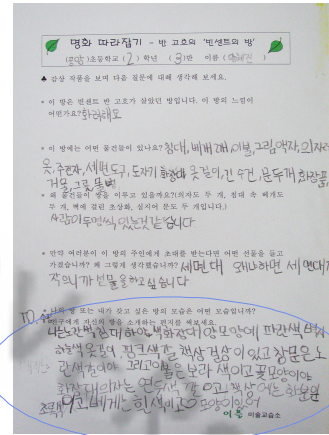 명화 따라잡기 - 반 고흐의 '빈센트의 방'
초등학교 ( 2 ) 학년 ( 3 )반 이름
♣ 감상 작품을 보며 다음 질문에 대해 생각해 보세요.
* 이 방은 빈센트 반 고흐가 살았던 방입니다. 이 방의 느낌이
어떤가요? 화려해요
* 이 방에는 어떤 물건들이 있나요? 침대, 베개 2개, 이불, 그림, 액자, 의자
옷, 주전자, 세면도구, 도자기, 화장대, 옷걸이, 긴 수건, 문 두개, 화장품,
거울, 그릇, 물병
* 왜 물건들이 쌍을 이루고 있을까요?(의자도 두 개, 침대 속 베개도
두 개, 벽에 걸린 초상화, 실외어 문도 두 개입니다.)
사람이 두명씩, 있는것 같습니다
* 만약 여러분이 이 방의 주인에게 초대를 받는다면 어떤 선물을 들고
가겠습니까? 왜 그렇게 생각했습니까? 세면대 왜냐하면 세면대가
작으니까 선물을 하고 싶습니다
나의 방 또는 내가 갖고 싶은 방의 모습은 어떤 모습입니까?
친구에게 자신의 방을 소개하는 편지를 써보세요.
나는 간색 침대 하양색 화장대 양 모양에 파란색
하늘색 옷장에 핑크색깔 책상 거상이 있고 창문은 노
란색 초이야 그리고 이불은 보라색이고 꽃모양이야
화장대 의자는 연두색 이고 책상에는 화분일
초록색 이고 베게는 흰색이고 모양이 있어
이룸 미술교습소